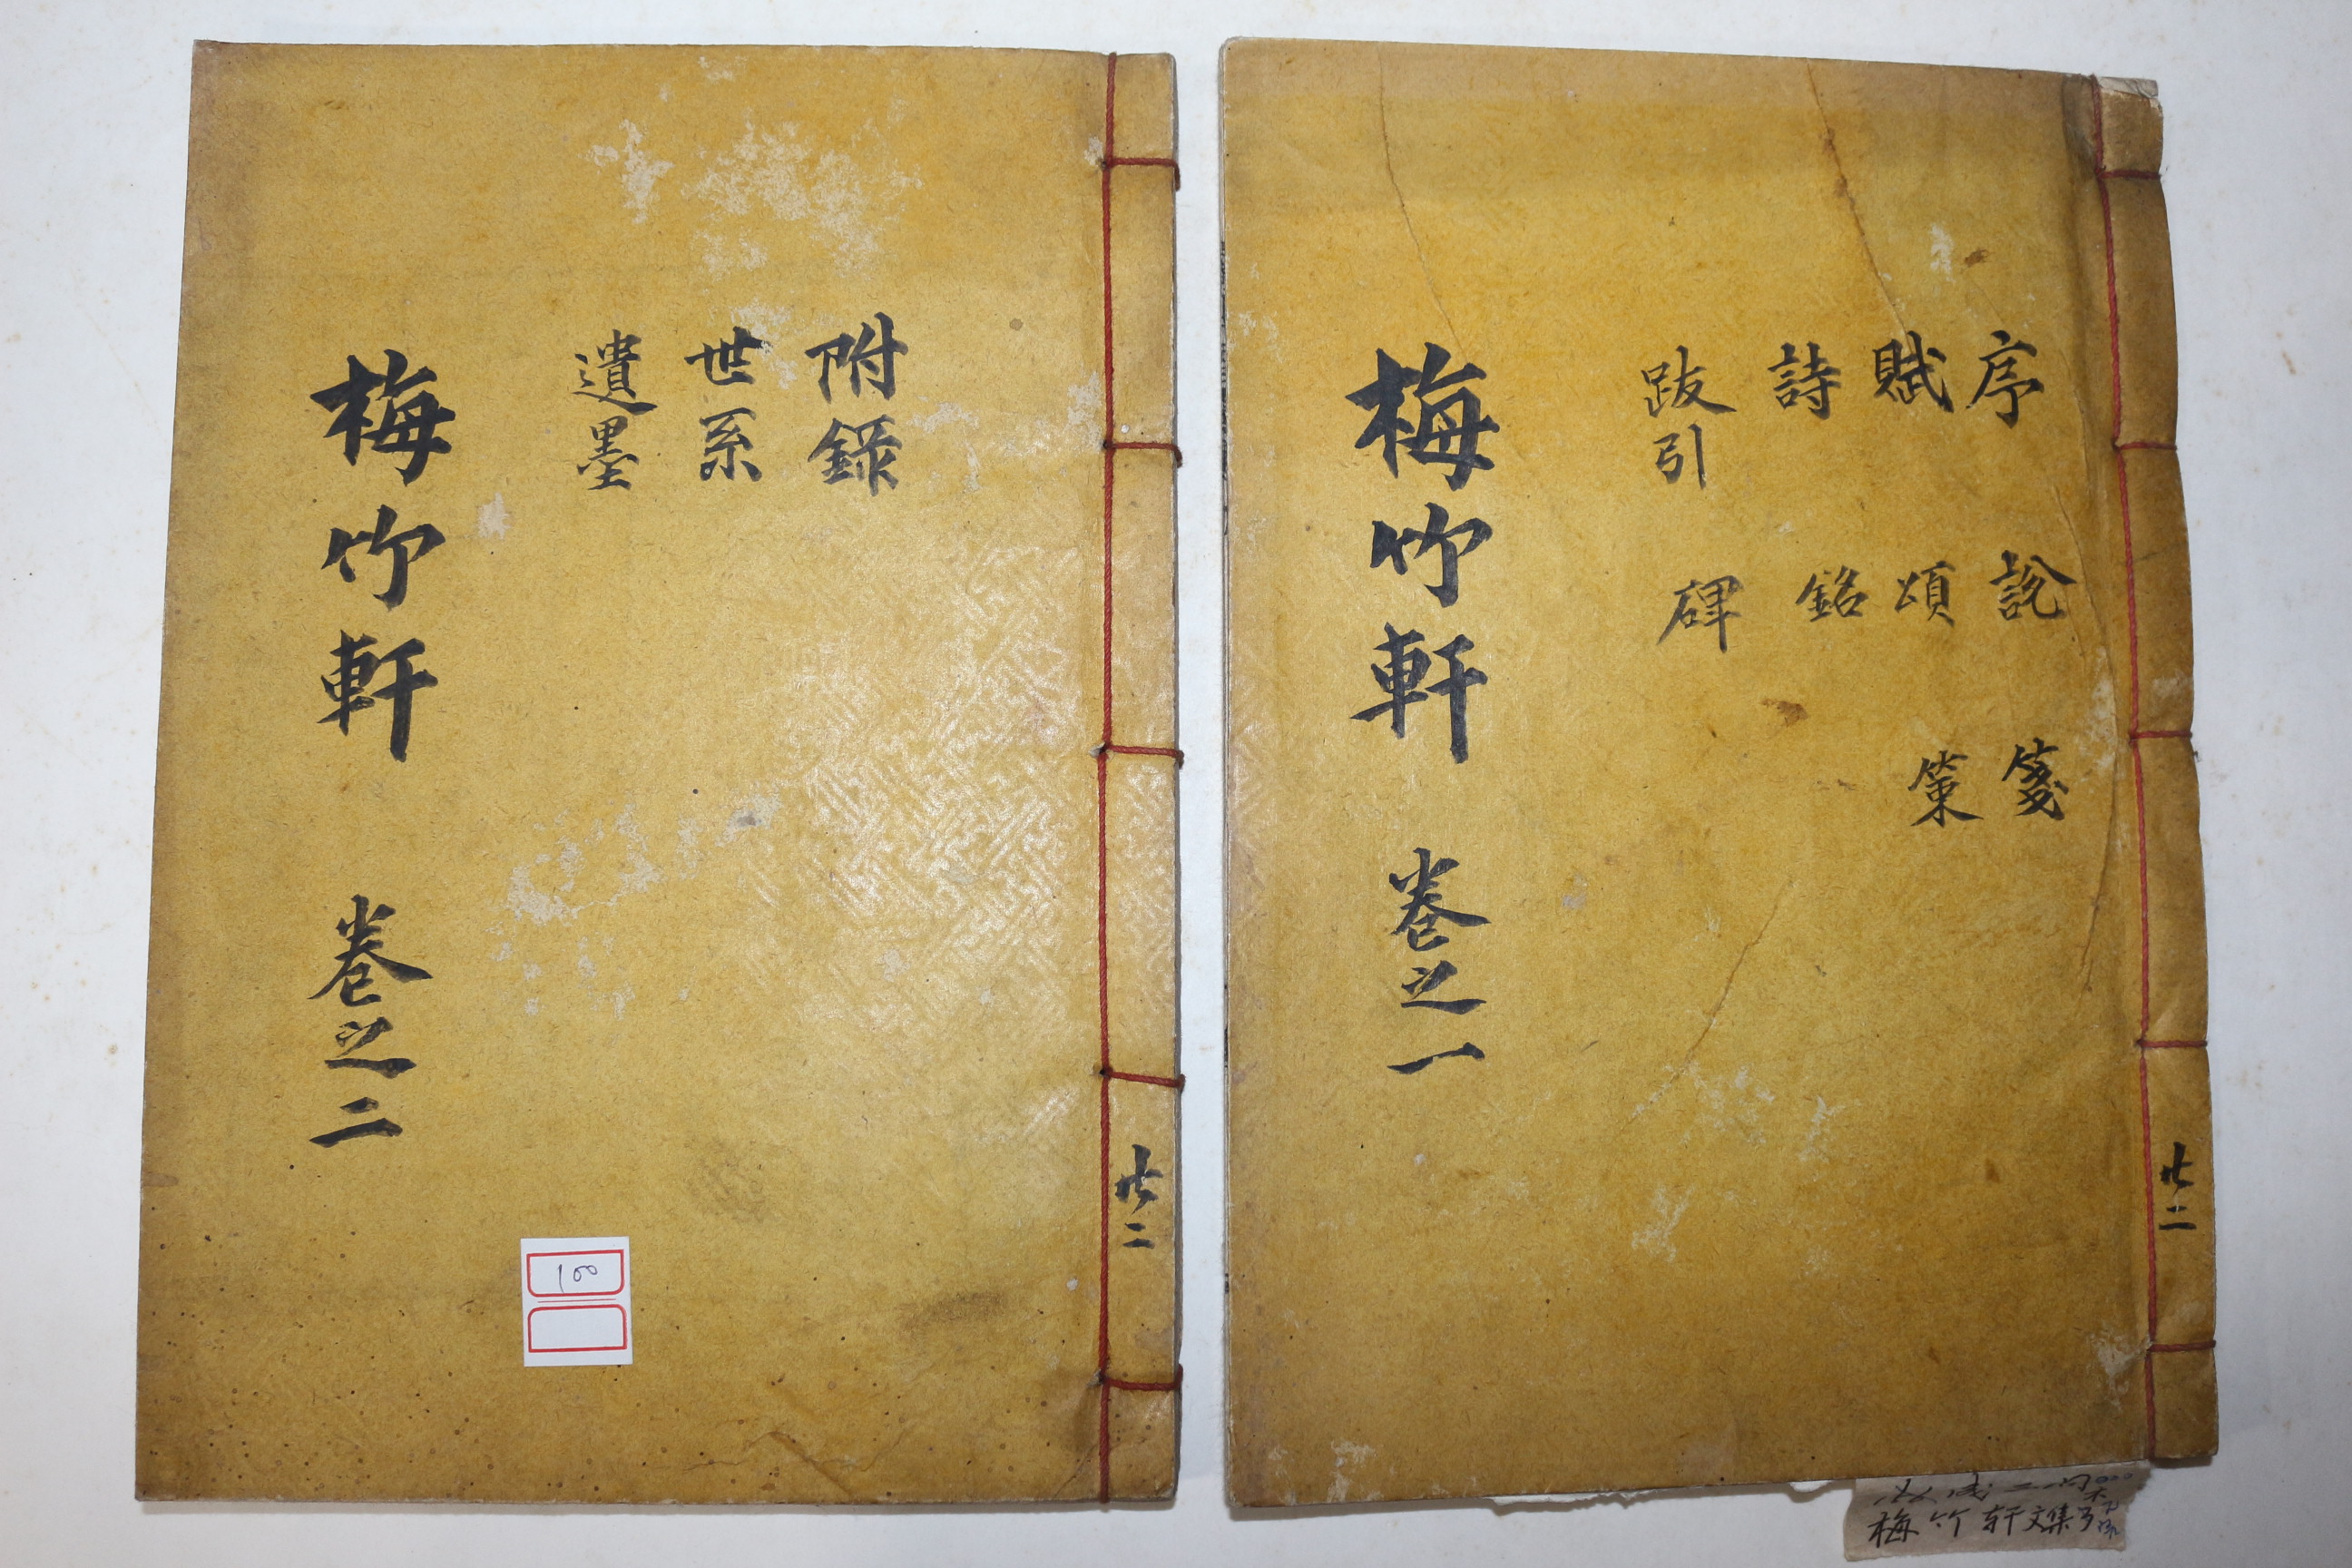 序 說 箋
賦 頌 策
詩 銘
跋引 碑
梅竹軒 卷之一
共二
附錄
世系
遺墨
梅竹軒 卷之二
共二
100
梅竹軒文集